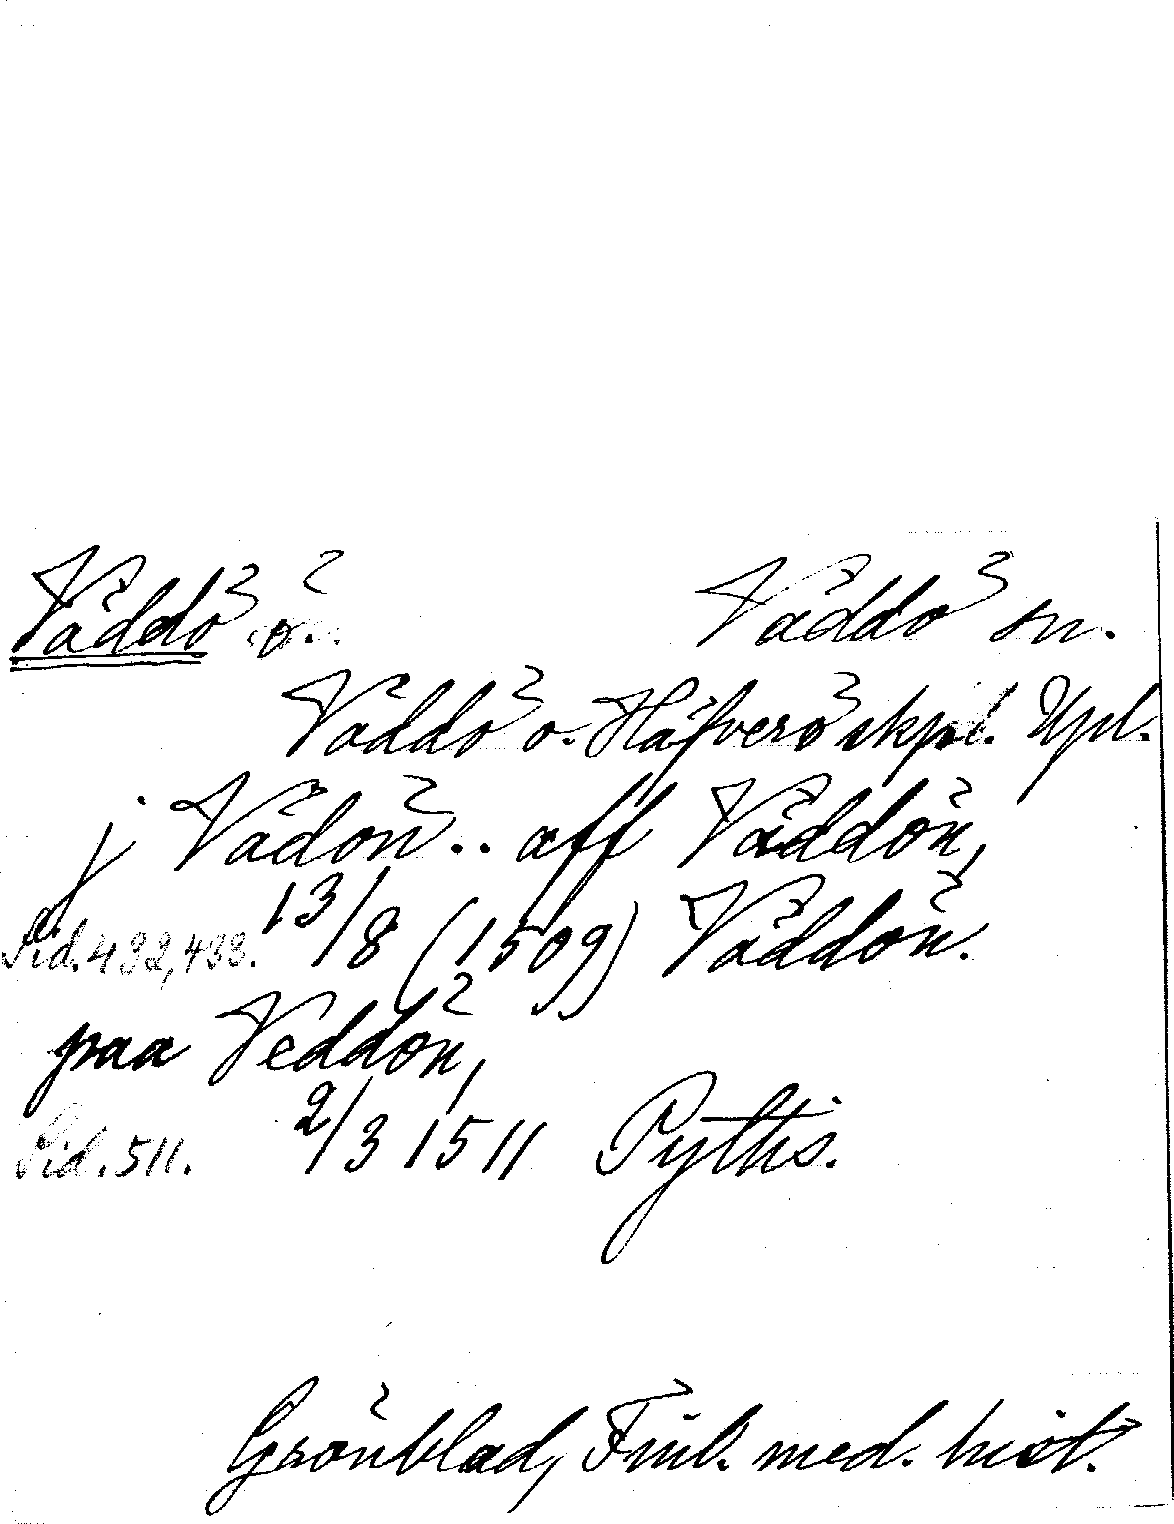 Väddö ö. Väddö sn.
Väddö o. Häfverö skpl. Upl.
j Vädön .. aff Väddön,
Sid. 432, 433. 13/8 (1509) Väddön.
paa Veddön,
Sid. 511. 2/3 1511 Pyttis.
Grönblad, Finl. med. hist.